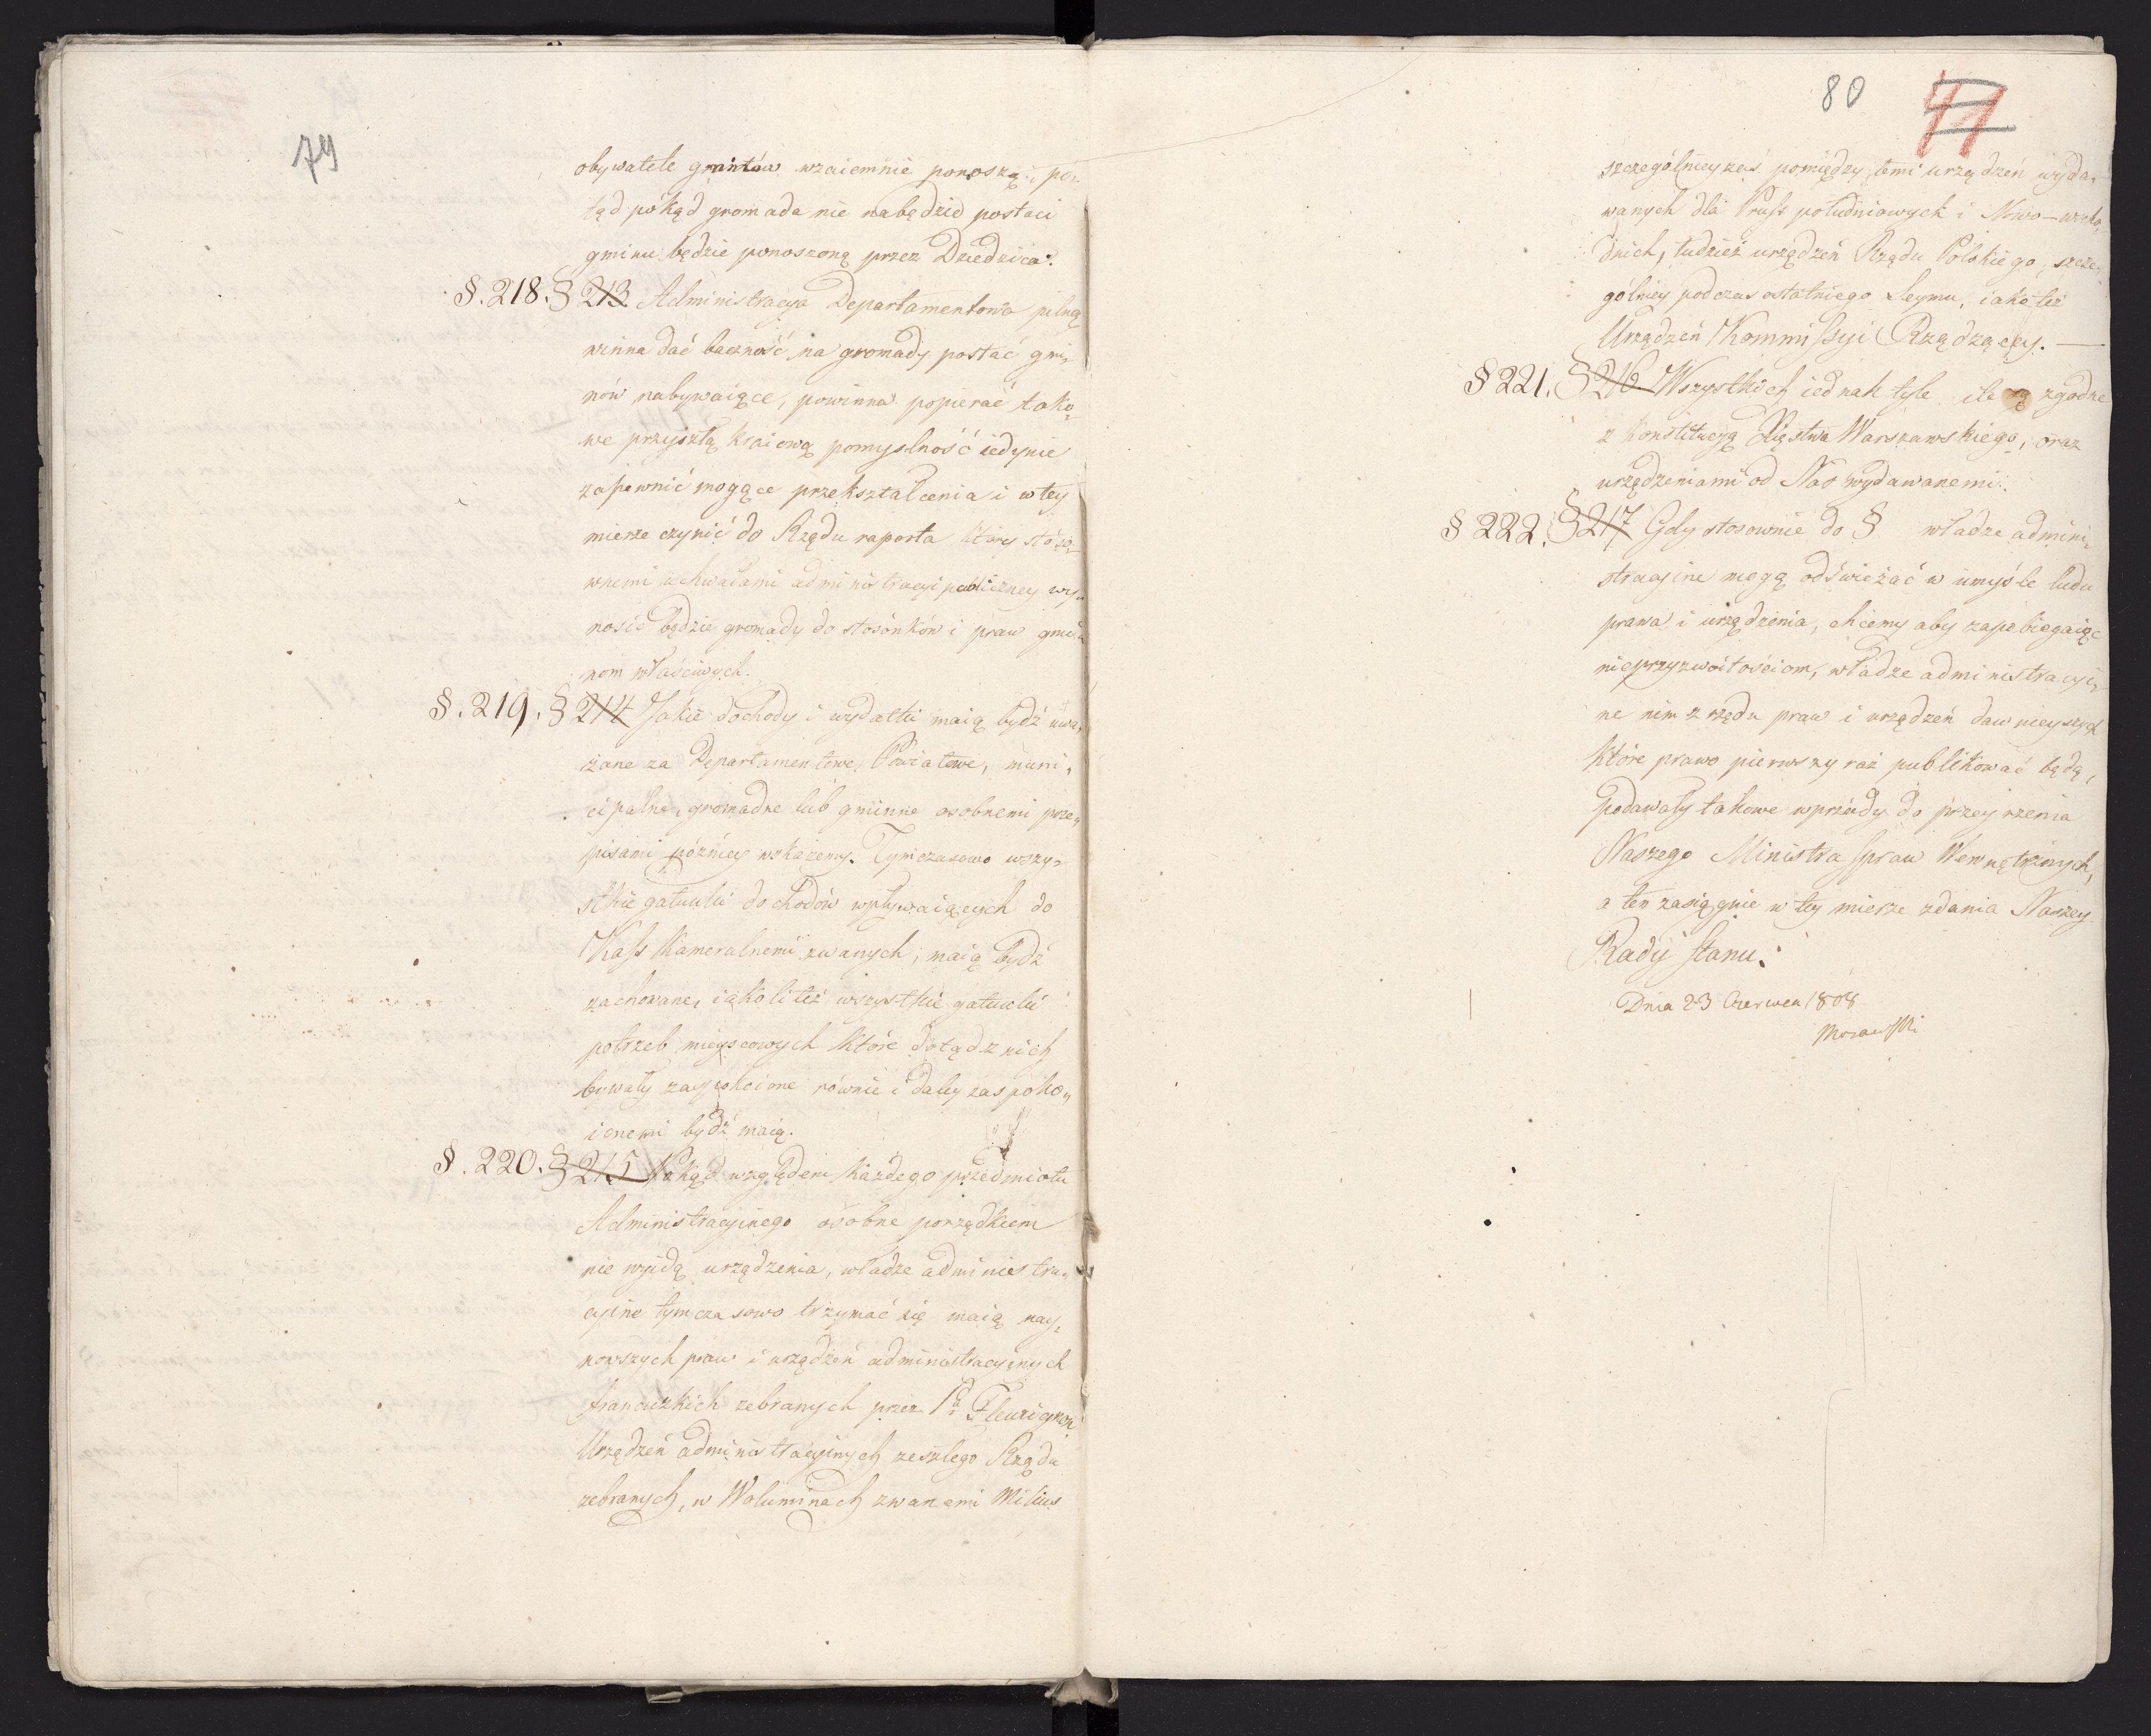 79
obywatele gruntów wzaiemnie ponoszą; po„
tąd pókąd gromada nie nabędzie postaci
gminu będzie ponoszoną przez Dziedzica.
§. 218. § 213 Administracya Departamentowa pilną
winna dać baczność na gromady postać gmi„
nów nabywaiące, powinna popierać tako„
we przyszłą kraiową pomyslność iedynie
zapewnić mogące przekształcenia i w tey
mierze czynić do Rządu raporta który stóso„
wnemi uchwałami administracyi publiczney wy„
nosić będzie gromady do stosónków i praw gmi„
nom właściwych.
§. 219. § 214 Jakie dochody i wydatki maią bydź uwa„
żane za Departamentowe, Powiatowe, muni„
cipalne, gromadne lub gminne osobnemi prze„
pisami późniey wskażemy. Tymczasowo wszy„
stkie gatunki dochodów wpływaiących do
Kass Kameralnemi zwanych, maią bydź
zachowane, iakoli też wszystkie gatunki
potrzeb mieyscowych które dotąd z nich
bywały zaspokoione równie i daley zaspoko„
ionemi bydź maią.
§. 220. § 215 Pokąd względem każdego przedmiotu
Administracyinego osobne porządkiem
nie wyidą urządzenia, władze administra„
cyine tymczasowo trzymać się maią nay„
nowszych praw i urządzeń administracyinych
francuzkich zebranych przez Pa Fleurigeon
Urządzeń administracyinych zeszłego Rządu
zebranych, w Woluminach zwanemi Milius
80
szczególniey zaś pomiędzy temi urządzeń wyda„
wanych dla Pruss południowych i Nowo–wscho„
dnich, tudzież urządzeń Rządu Polskiego, szcze„
gólniey podczas ostatniego Seymu, iako też
Urządzeń Kommissyi Rządzącey. —
§ 221. § 216 Wszystkich iednak tyle ile są zgodne
z Konstitucyą Xięstwa Warszawskiego, oraz
urządzeniami od Nas wydawanemi.
§ 222. § 217 Gdy stosownie do § władze admini„
stracyine mogą odświeżać w umyśle ludu
prawa i urządzenia, chcemy aby zapobiegaiąc
nieprzyzwoitościom, władze administracyi„
ne nim z rzędu praw i urządzeń dawnieyszych
które prawo pierwszy raz publikować będą,
podawały takowe wprzódy do przeyrzenia
Naszego Ministra Spraw Wewnętrznych,
a ten zasięgnie w tey mierze zdania Naszey
Rady Stanu.
Dnia 23 Czerwca 1808
Morawski